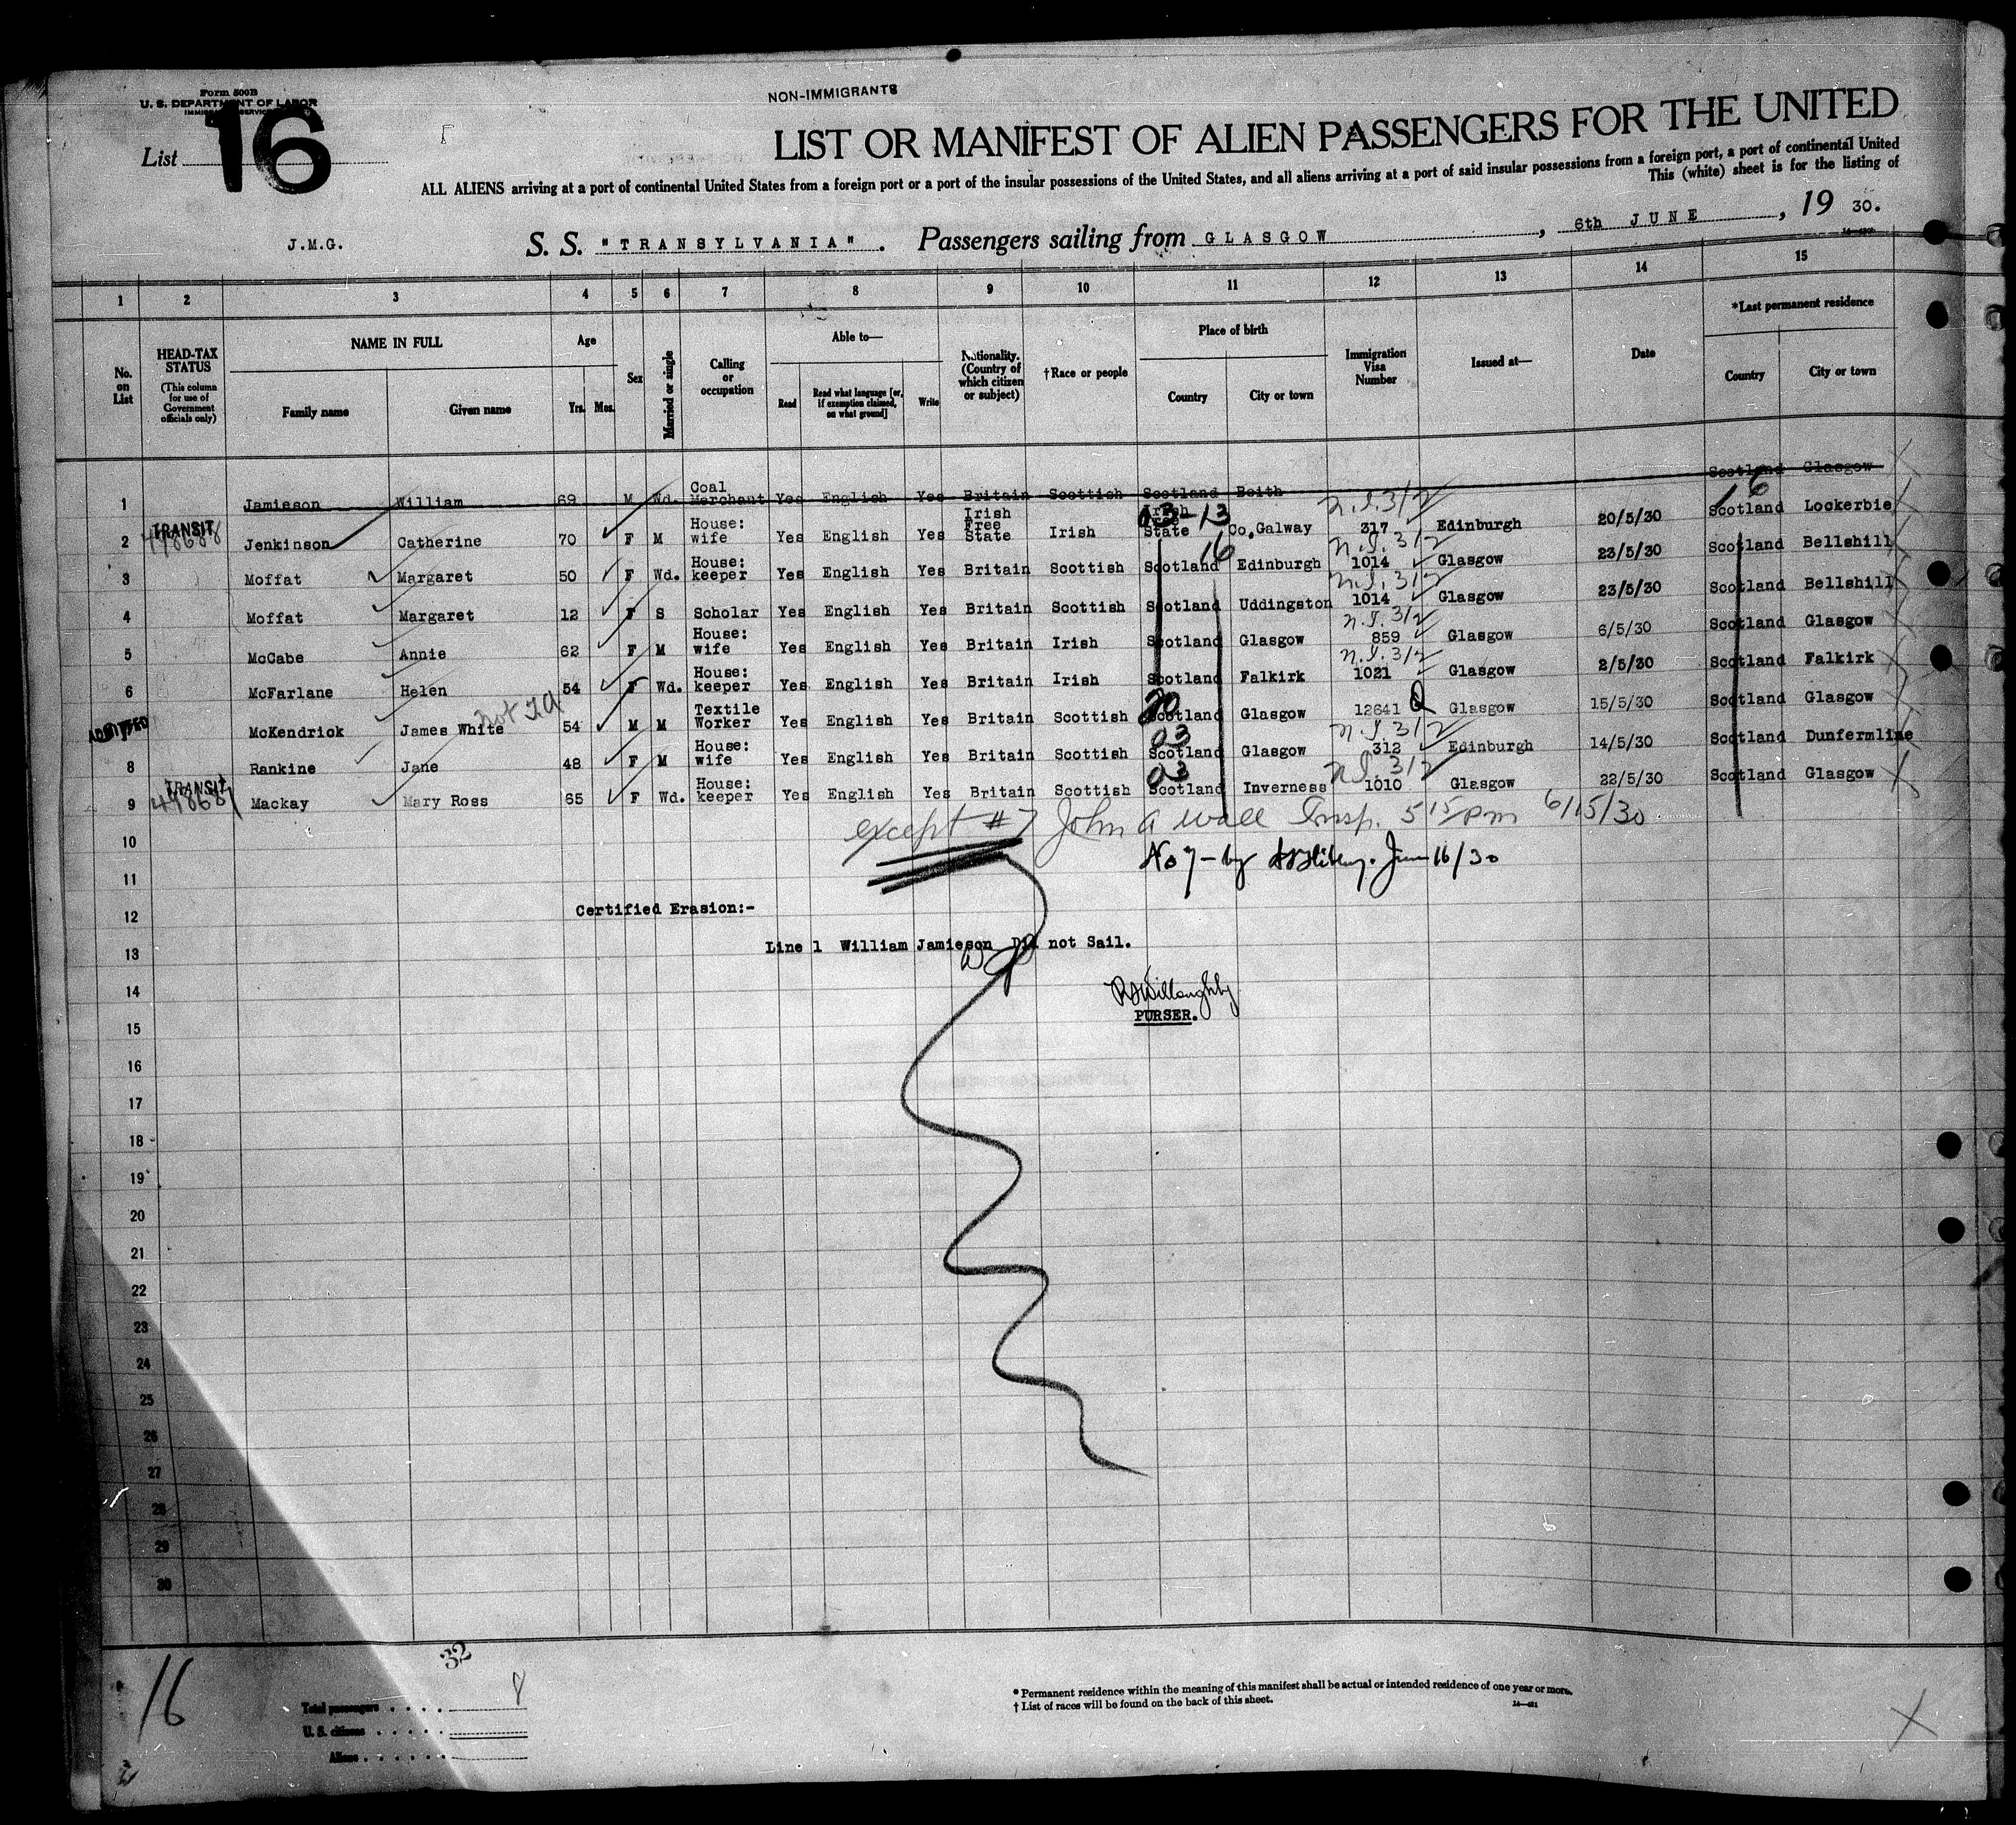 Form 500B
U. S. DEPARTMENT OF LABOR
IMMIGRATION SERVICE
NON-IMMIGRANTS
List 16
LIST OR MANIFEST OF ALIEN PASSENGERS FOR THE UNITED
ALL ALIENS arriving at a port of continental United States from a foreign port or a port of the insular possessions of the United States, and all aliens arriving at a port of said insular possessions from a foreign port, a port of continental United
This (white) sheet is for the listing of
J.M.G. S. S. "TRANSYLVANIA". Passengers sailing from GLASGOW, 6th JUNE, 19 30.
1 2 3 4 5 6 7 8 9 10 11 12 13 14 15
No. on List
HEAD-TAX STATUS (This column for use of Government officials only)
NAME IN FULL Family name Given name
Age Yrs. Mos.
Sex
Married or single
Calling or occupation
Able to— Read Read what language [or, if exemption claimed, on what ground] Write
Nationality. (Country of which citizen or subject)
†Race or people
Place of birth Country City or town
Immigration Visa Number
Issued at—
Date
*Last permanent residence Country City or town
1 Jamieson William 69 M Wd. Coal Merchant Yes English Yes Britain Scottish Scotland Beith Scotland Glasgow
2 TRANSIT 498688 Jenkinson Catherine 70 F M House: wife Yes English Yes Irish Free State Irish Irish State 03-13 Co. Galway N.I. 3/2 317 Edinburgh 20/5/30 Scotland Lockerbie
3 Moffat Margaret 50 F Wd. House: keeper Yes English Yes Britain Scottish Scotland 16 Edinburgh N.I. 3/2 1014 Glasgow 23/5/30 Scotland Bellshill
4 Moffat Margaret 12 F S Scholar Yes English Yes Britain Scottish Scotland Uddingston N.I. 3/2 1014 Glasgow 23/5/30 Scotland Bellshill
5 McCabe Annie 62 F M House: wife Yes English Yes Britain Irish Scotland Glasgow N.I. 3/2 859 Glasgow 6/5/30 Scotland Glasgow
6 McFarlane Helen 54 F Wd. House: keeper Yes English Yes Britain Irish Scotland Falkirk N.I. 3/2 1021 Glasgow 2/5/30 Scotland Falkirk
ADMITTED McKendrick James White 54 M M Textile Worker Yes English Yes Britain Scottish Scotland 20 Glasgow 12641 Q Glasgow 15/5/30 Scotland Glasgow
8 Rankine Jane 48 F M House: wife Yes English Yes Britain Scottish Scotland 03 Glasgow N.I. 3/2 312 Edinburgh 14/5/30 Scotland Dunfermline
9 TRANSIT Mackay Mary Ross 65 F Wd. House: keeper Yes English Yes Britain Scottish Scotland 03 Inverness N.I. 3/2 1010 Glasgow 22/5/30 Scotland Glasgow
except #7 John A Wall Insp. 5 15 pm 6/15/30
10
No 7 - by June 16/30
11
12 Certified Erasion:-
13 Line 1 William Jamieson Did not Sail.
14 Willoughby
15 PURSER.
16
17
18
19
20
21
22
23
24
25
26
27
28
29
30
32
16
Total passengers 8
U. S. citizens
Aliens
* Permanent residence within the meaning of this manifest shall be actual or intended residence of one year or more.
† List of races will be found on the back of this sheet.